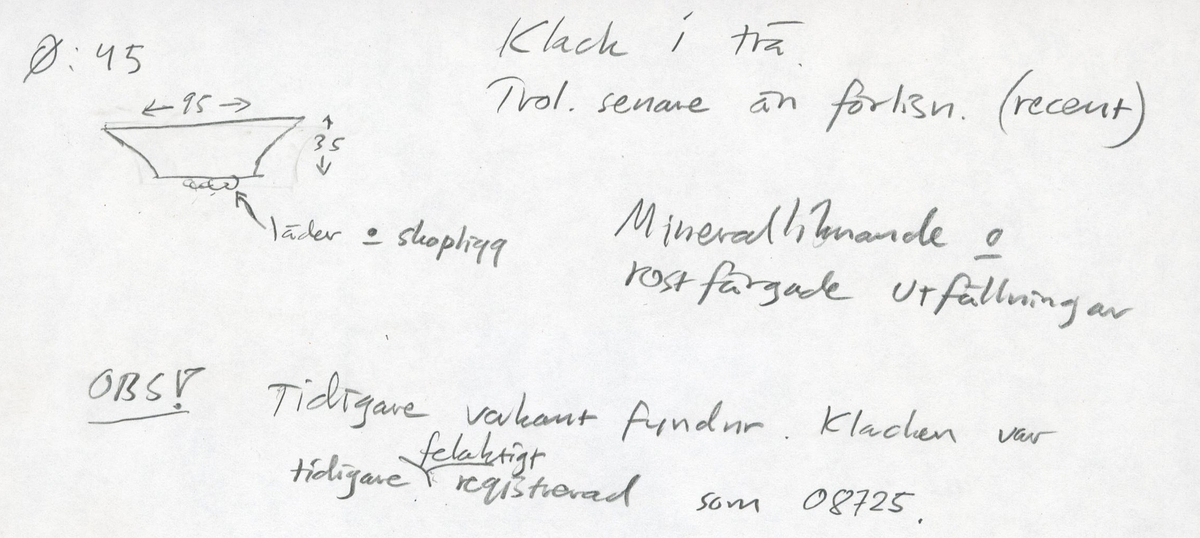 Ø: 45
Klack i trä.
← 95 →
Trol. senare än förlisn. (recent)
35
läder o skopligg
Mineralliknande o
rostfärgade utfällningar
OBS!
Tidigare vakant fyndnr. Klacken var
felaktigt
tidigare registrerad som 08725.